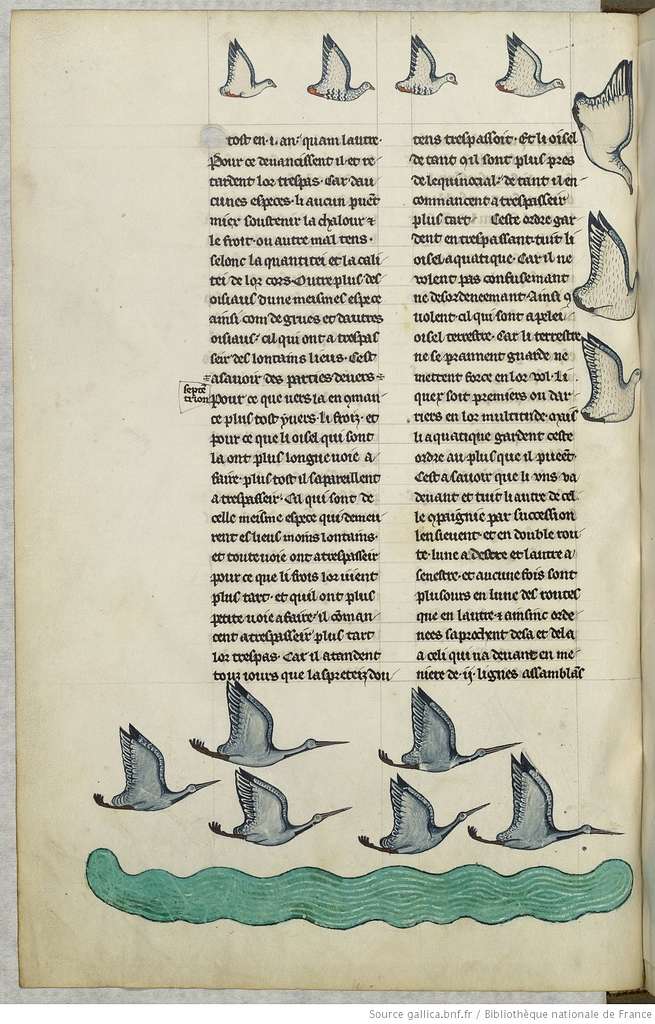 tost en .i. an. quam lautre.
Pour ce devancissent il et re
tardent lor trespas. Car dau
cunes especes. li aucun puet
miex soustenir la chalour &
le froit. ou autre mal tens.
selonc la quantitei et la cali
tei de lor cors. Outre plus des
oisiaus dune meismes espece
ainsi com de grues et dautres
oisiaus. cil qui ont a trespas
seir des lontains lieus. Cest
a savoir des parties devers
septe
trion
Pour ce que vers la en coman
ce plus tost yvers. li froiz. et
pour ce que li oisel qui sont
la ont plus longue voie a
faire. plus tost il sapareillent
a trespasseir. Cil qui sont de
celle meisme espece qui demeu
rent es lieus moins lontains.
et toute voie ont a trespasseir
pour ce que li frois lor vient
plus tart. et quil ont plus
petite voie a faire. il coman
cent a trespasseir plus tart
lor trespas. Car il atendent
touz iours que laspreteiz dou
tens trespassoit. Et li oisel
de tant qil sont plus pres
de lequinoxial. de tant il en
commancent a trespasseir
plus tart Ceste ordre gar
dent en trespassant tuit li
oisel aquatique. Car il ne
volent pas confusemant
ne desordenemant. Ainsi q
volent cil qui sont apelei
oisel terrestre. Car li terrestre
ne se praiment guarde ne
mettent force en lor vol. Li
quex soit premiers ou dar
riers en lor multitude. mais
li aquatique gardent ceste
ordre au plus que il pueet.
Cest a savoir que li uns va
devant et tuit li autre de cel
le 9paignie par succession
lensievent. et en double rou
te. lune a destre et lautre a
senestre. et aucune fois sont
plusours en lune des routes
que en lautre & ainsinc orde
nees saprochent desa et dela
a celi qui va devant en me
niere de .ij. lignes assamblans
Source gallica.bnf.fr / Bibliothèque nationale de France